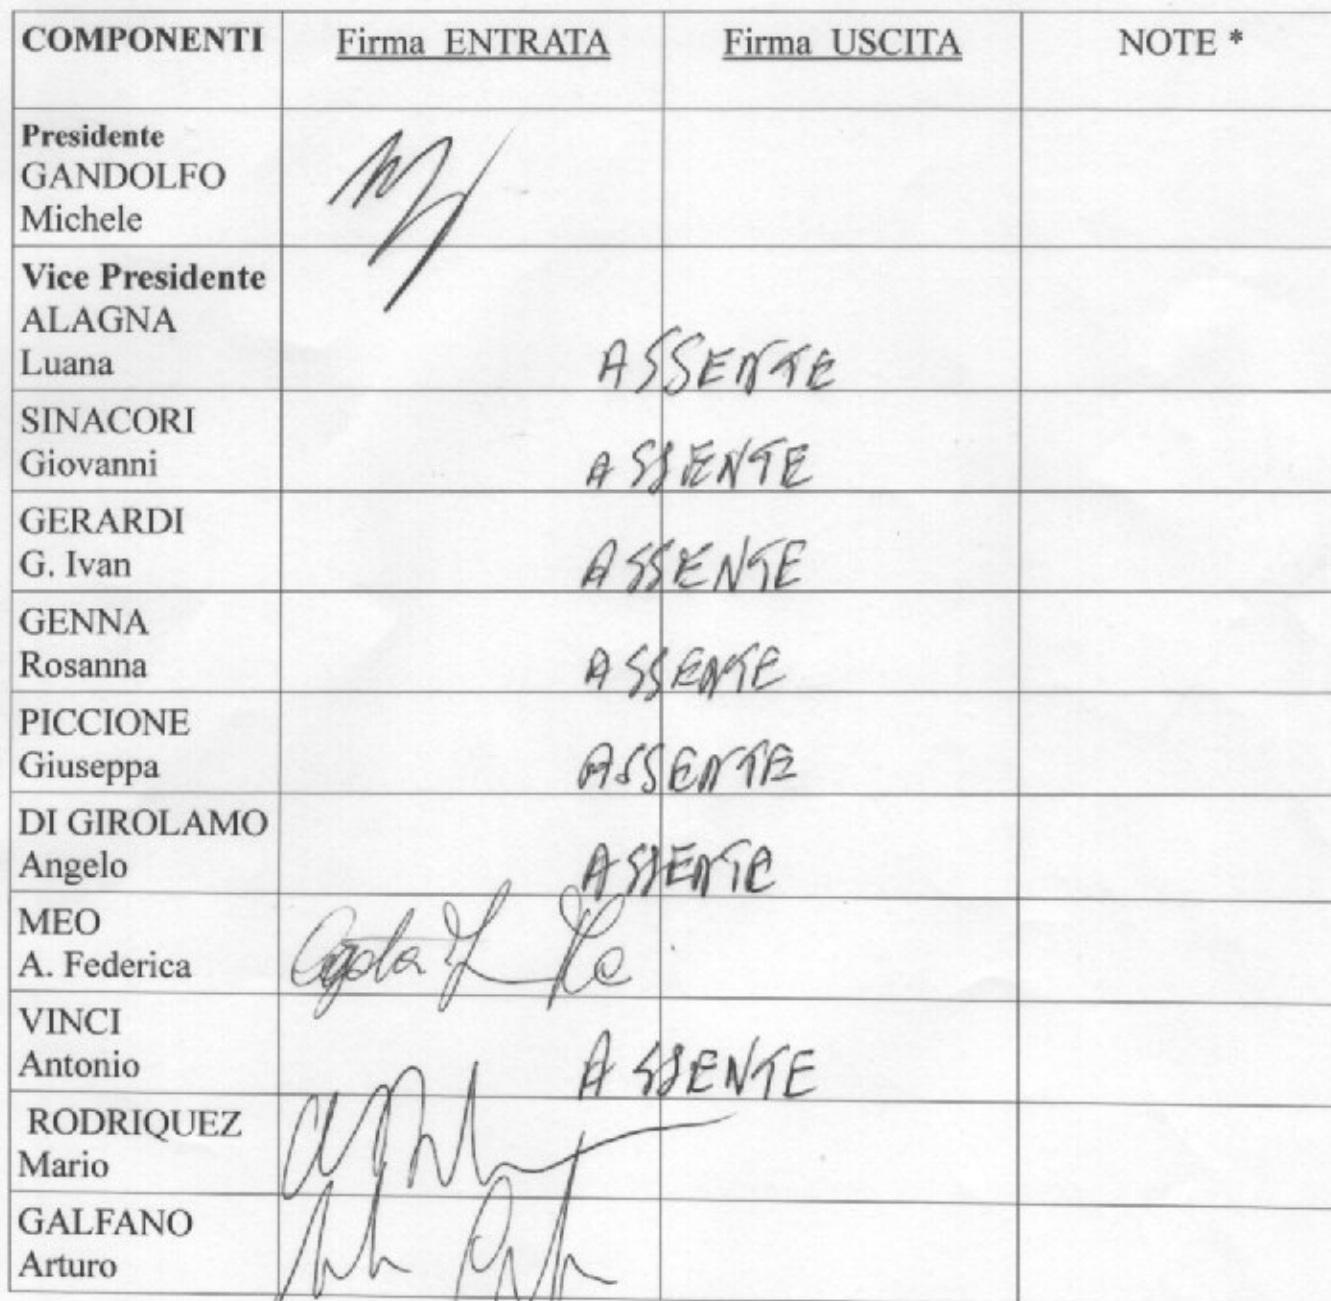 COMPONENTI Firma ENTRATA Firma USCITA NOTE *
Presidente
GANDOLFO
Michele
Vice Presidente
ALAGNA
Luana ASSENTE
SINACORI
Giovanni ASSENTE
GERARDI
G. Ivan ASSENTE
GENNA
Rosanna ASSENTE
PICCIONE
Giuseppa ASSENTE
DI GIROLAMO
Angelo ASSENTE
MEO
A. Federica
VINCI
Antonio ASSENTE
RODRIQUEZ
Mario
GALFANO
Arturo